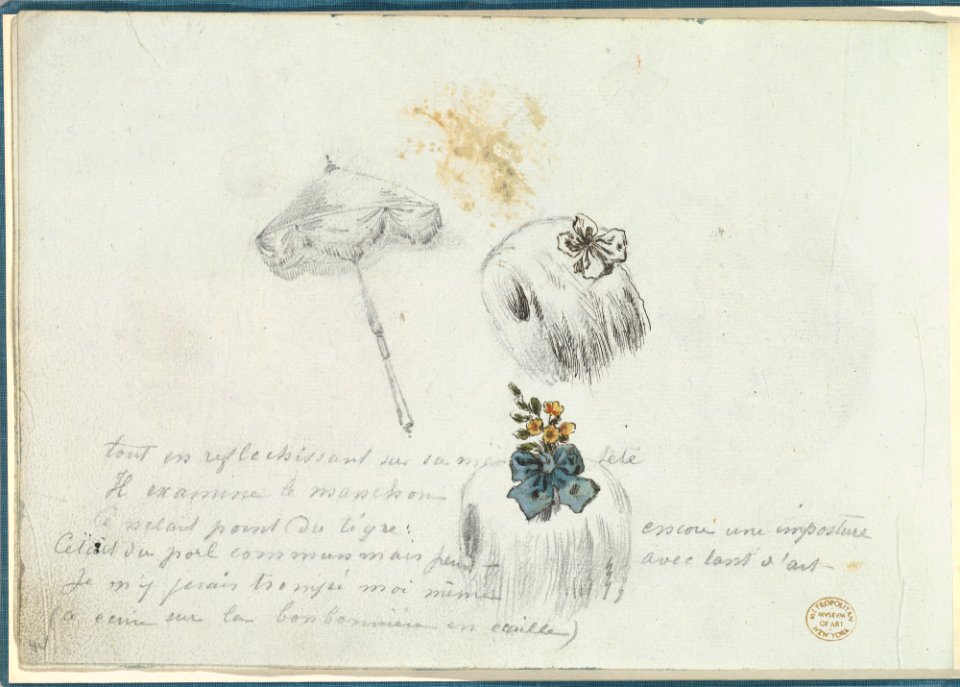 tout en reflechissant sur sa
Il examine le manchon
Ce netait point du tigre: encore une imposture
Cetait du poil commun mais peint avec tant d'art
Je m'y serais trompé moi même
(a ecrire sur la bonbonnière en ecaille)
METROPOLITAN
MUSEUM
OF ART
NEW YORK